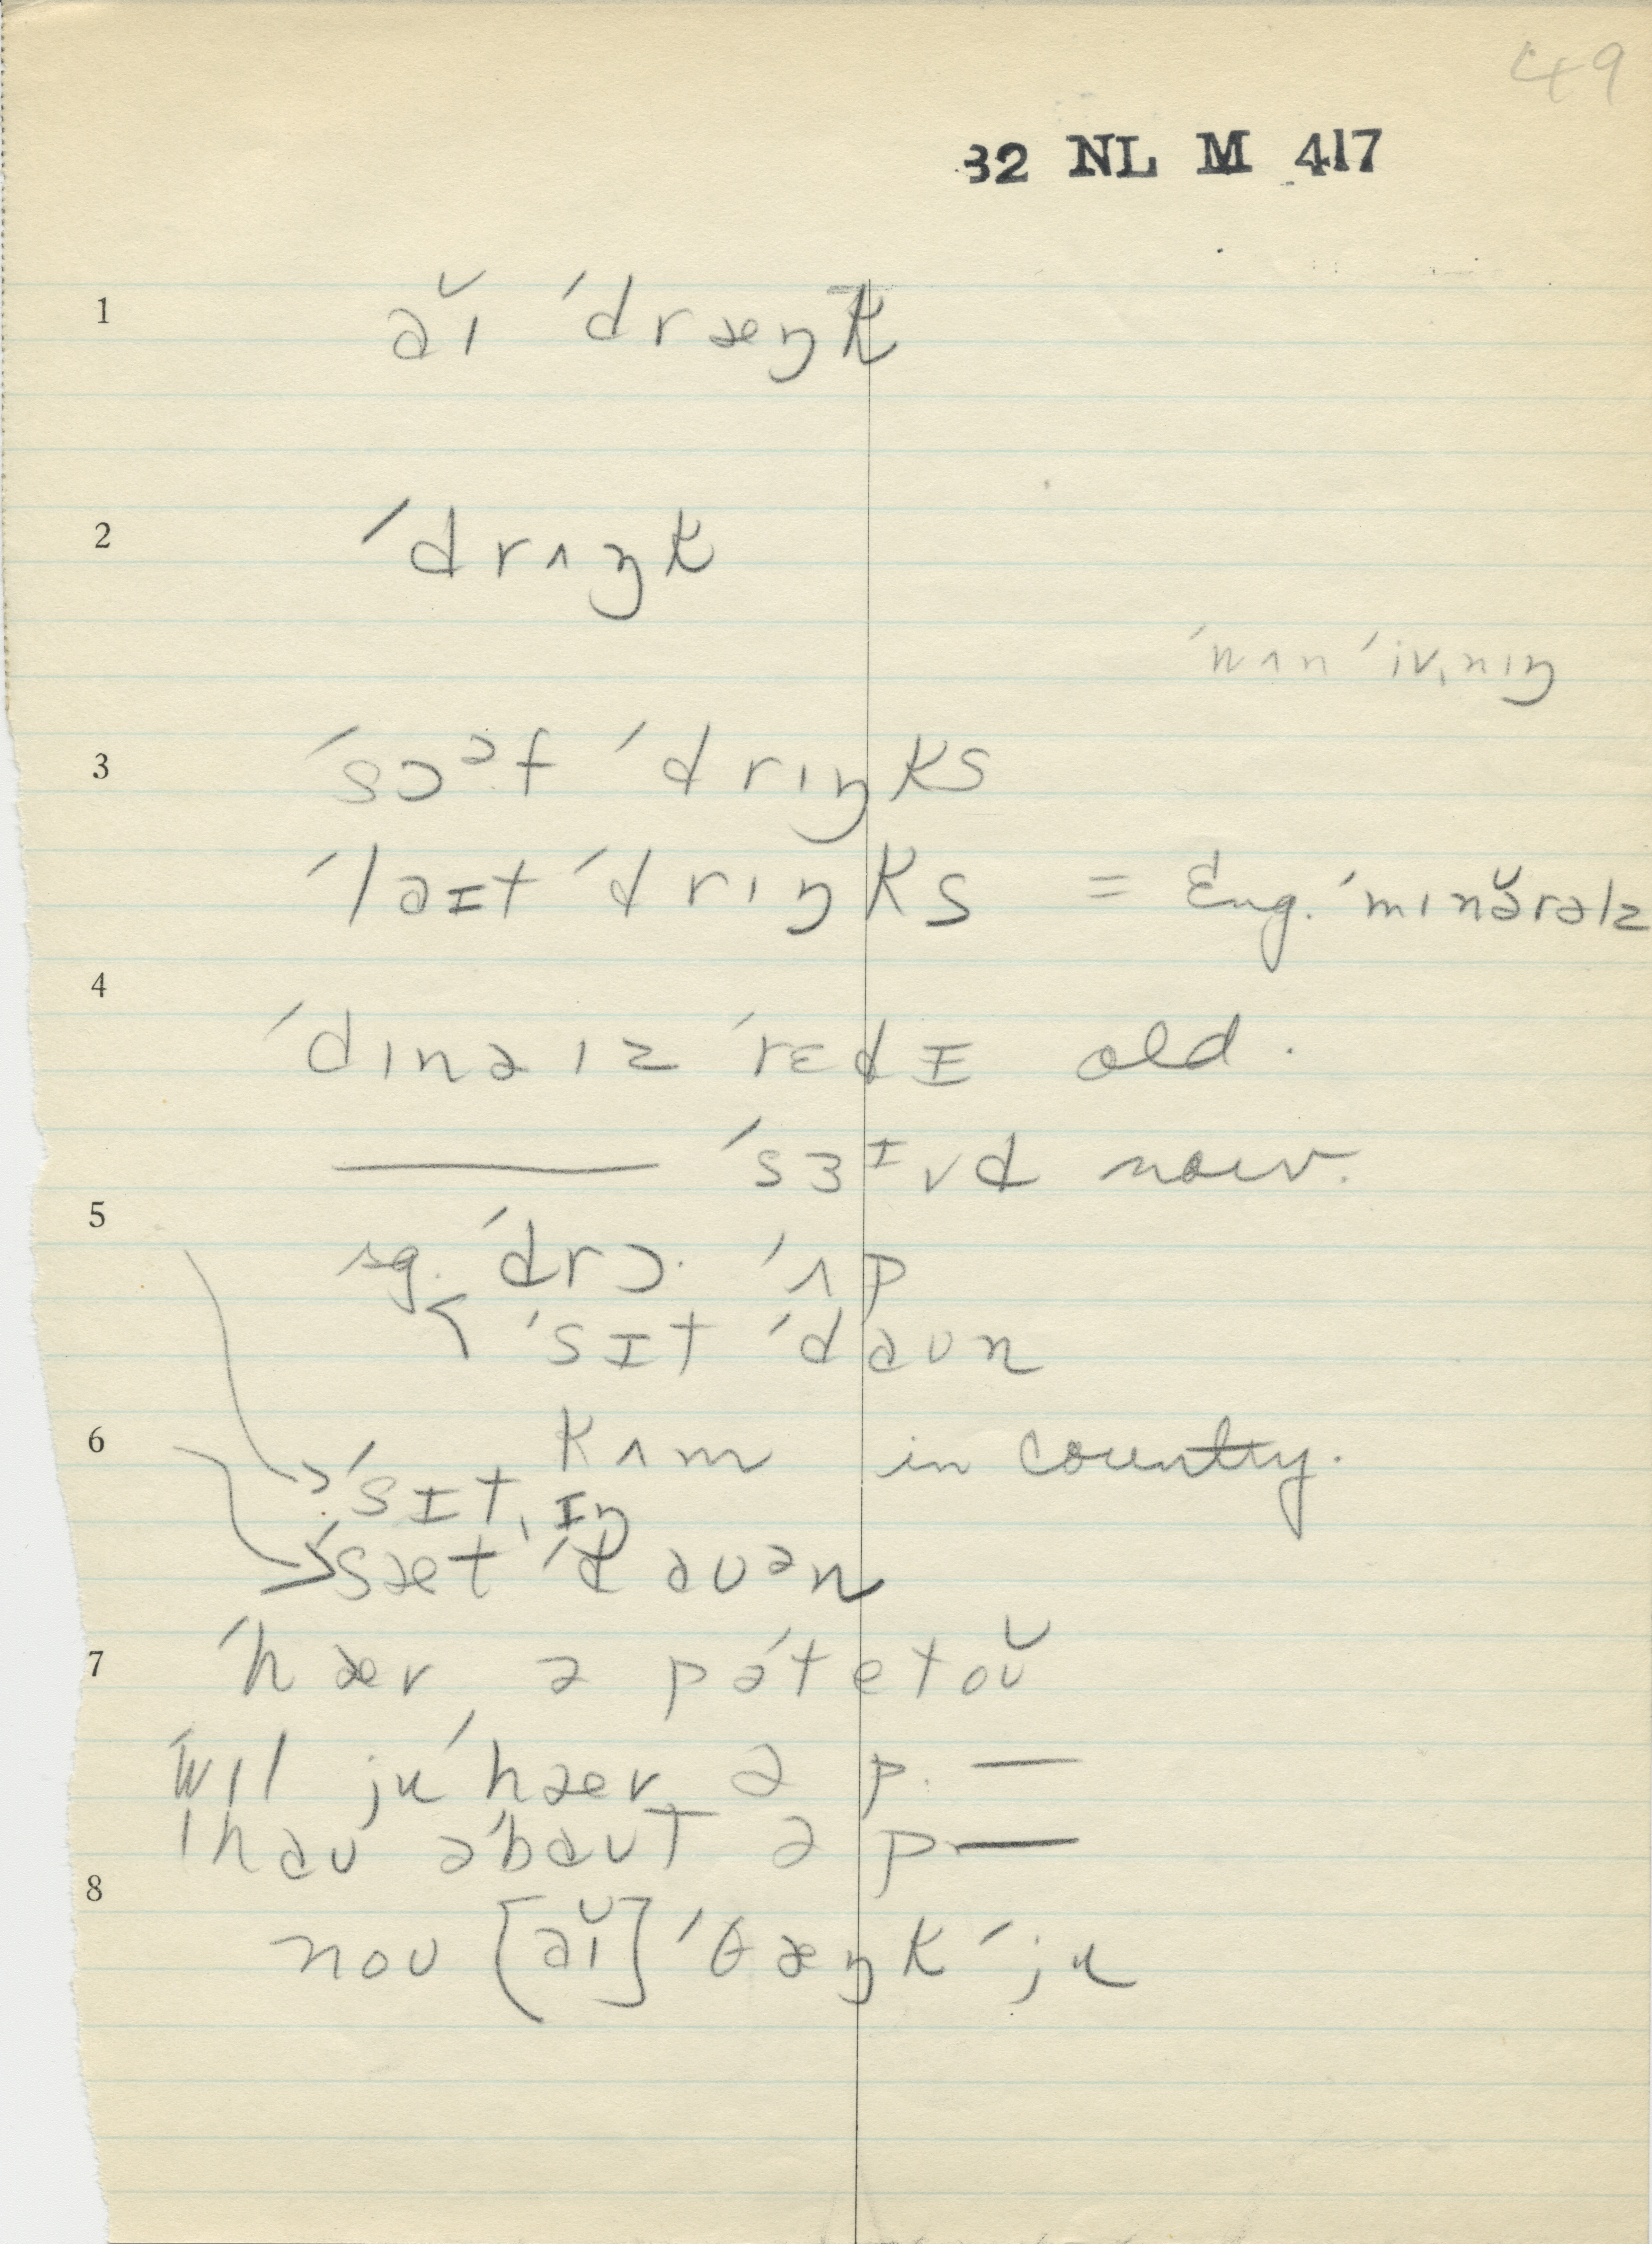 49
32 NL M 417
1 aɪ̆ ˈdræŋk
2 ˈdrʌŋk
ˈwʌn ˈivˌnɪŋ
3 ˈsɔᵊf ˈdrɪŋks
ˈlaɪt ˈdrɪŋks = Eng. ˈmɪnə̆rəlz
4
ˈdɪnə ɪz ˈrɛdɪ old.
——— ˈsɜᶦvd now.
5
sg. ˈdrɔ· ˈʌp
< ˈsɪt ˈdaʊn
6 kʌm in country.
ˈsɪtˌɪŋ
ˈsæt ˈdaʊᵊn
7 ˈhæv ə pəˈtetoʊ̆
ˈwɪl ju ˈhæv ə p. —
ˈhaʊ əˈbaʊt ə p —
8
noʊ [aɪ̆] ˈθæŋk ˈju